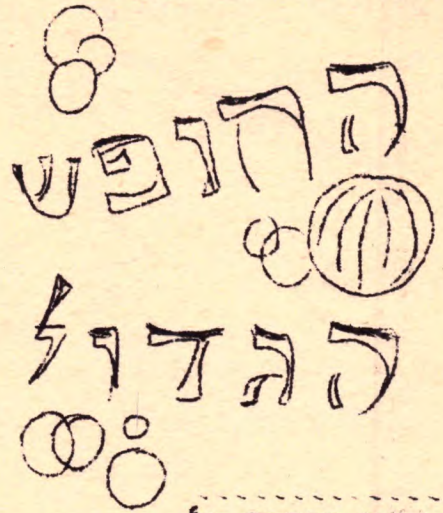 החופש
הגדול